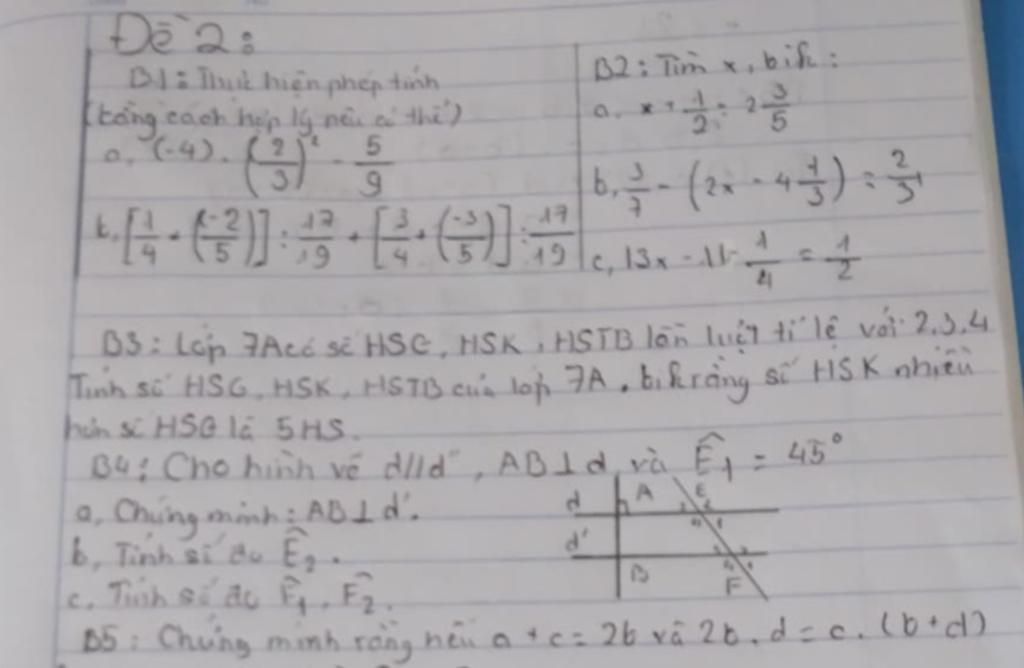 Đề 2:
B1: Thực hiện phép tính
(bằng cách hợp lý nếu có thể)
a, (-4) . (2/3)² - 5/9
b, [1/4 + (-2/5)] : 17/19 + [3/4 + (-3/5)] : 17/19
B2: Tìm x, bik:
a, x + 1/2 = 2 3/5
b, 3/7 - (2x - 4 1/3) = 2/3
c, |3x - 1| - 1/4 = 1/2
B3: Lớp 7A có số HSG, HSK, HSTB lần lượt tỉ lệ với 2,3,4
Tính số HSG, HSK, HSTB của lớp 7A, bik rằng số HSK nhiều
hơn số HSG là 5HS.
B4: Cho hình vẽ d//d', AB⊥d và Ê₁ = 45°
a, Chứng minh: AB⊥d'.
b, Tính số đo Ê₂.
c, Tính số đo F̂₁, F̂₂.
d A E
d'
B F
B5: Chứng minh rằng nếu a + c = 2b và 2b.d = c.(b+d)